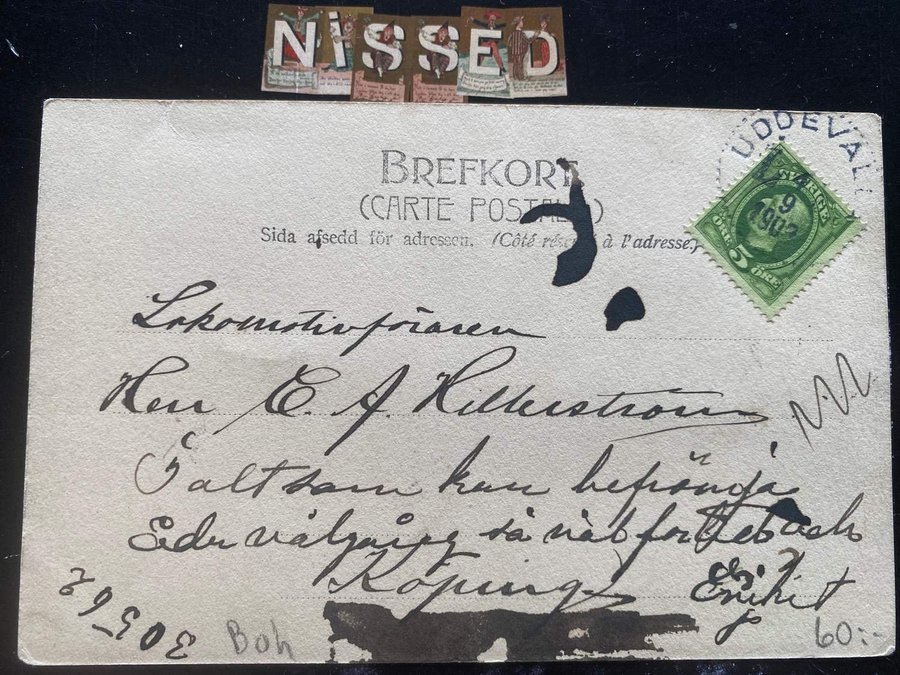 NISSED
BREFKORT
(CARTE POSTALE)
Sida afsedd för adressen. (Côté réservé à l'adresse.)
UDDEVALL
9
1902
SVERIGE
5 ÖRE
Lokomotivföraren
Herr E. A. Hillerström
I alt som kan befrämja
Eder välgång så väl
Köping
Enihet
30562
Boh
60:-